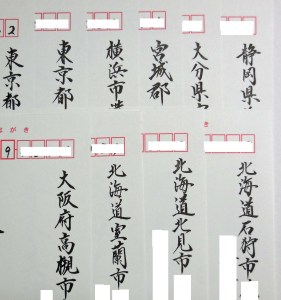 静岡県
大分県
宮城郡
横浜市
東京都
2
東京都
き
北海道石狩市
北海道北見市
北海道室蘭市
がき
9
大阪府高槻市